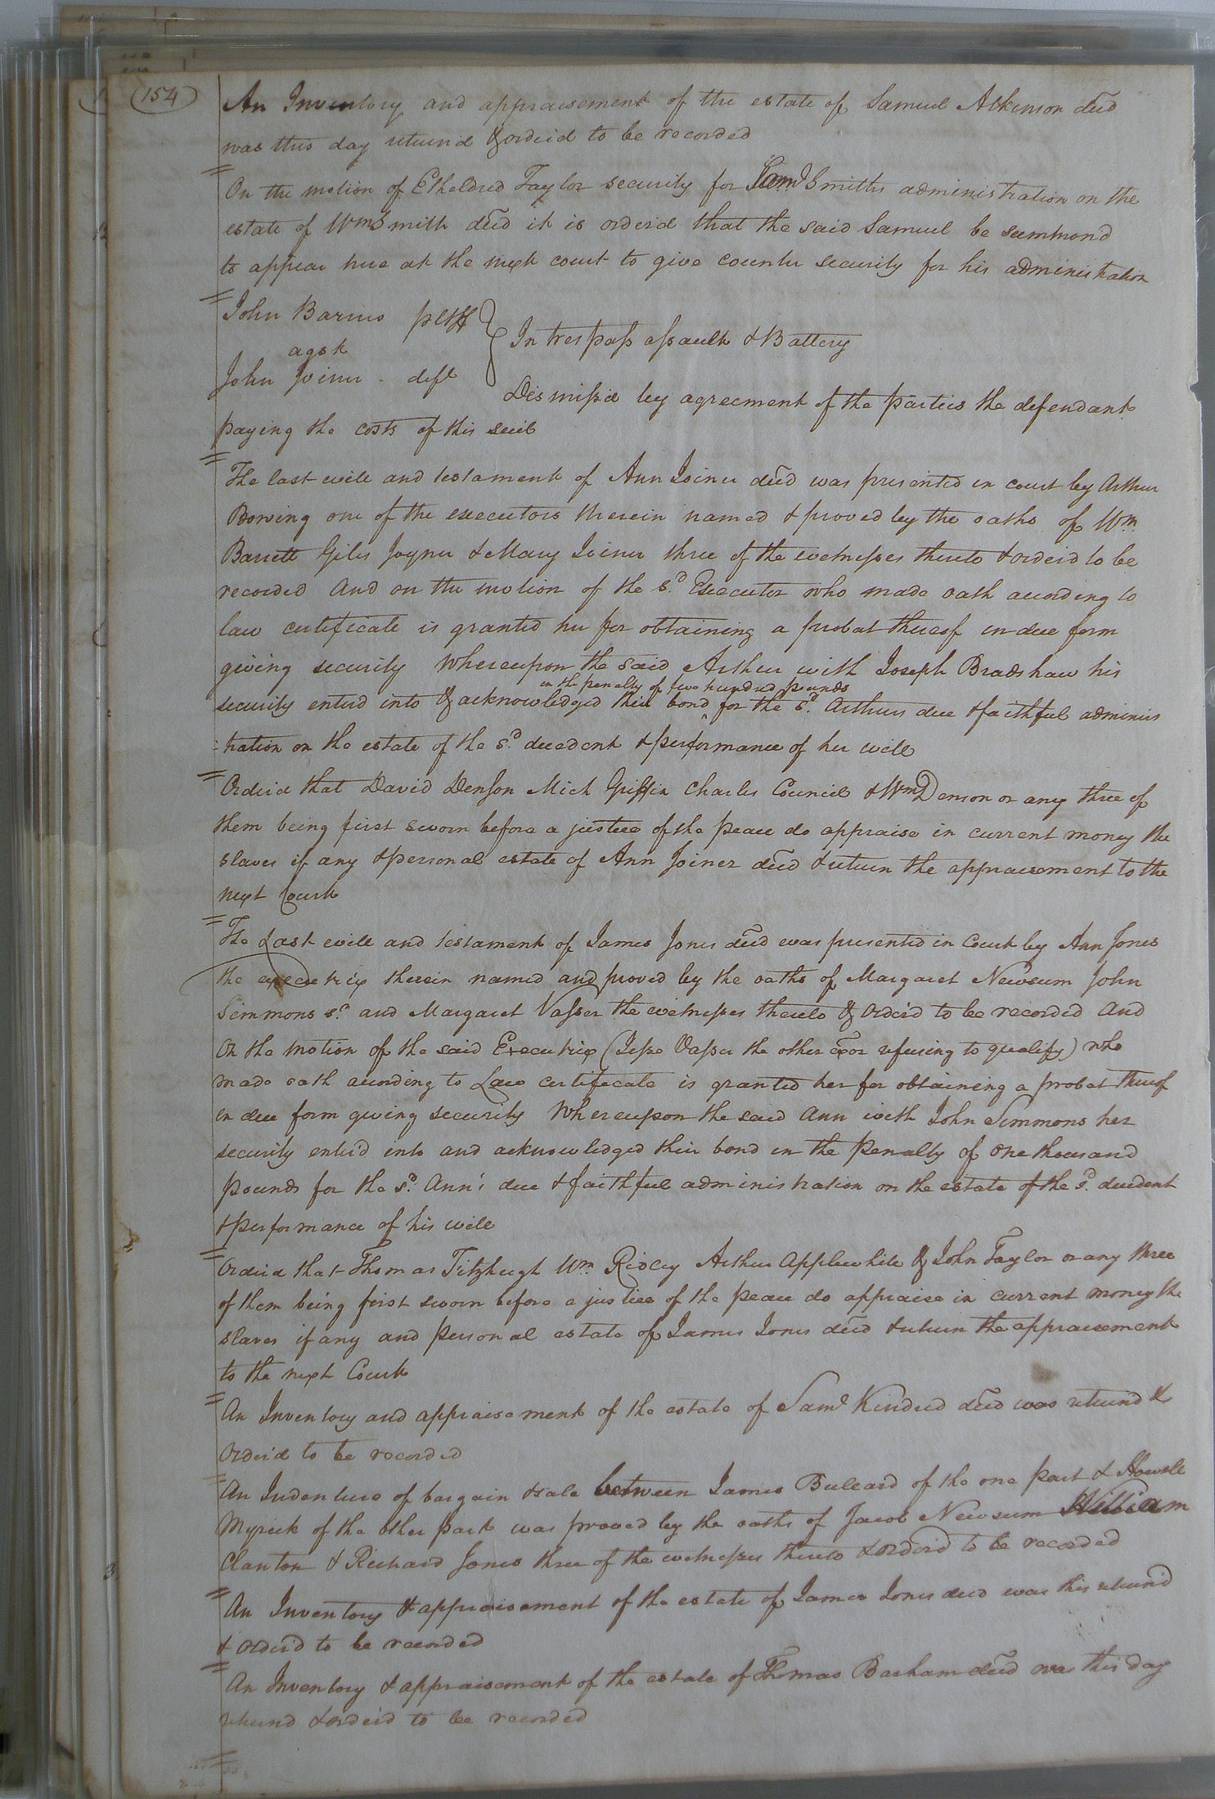 (154)
An Inventory and appraisement of the estate of Samuel Atkinson decd
was this day returnd & orderd to be recorded
On the motion of Etheldred Taylor security for Saml Smiths administration on the
estate of Wm Smith decd it is orderd that the said Samuel be summond
to appear here at the next court to give counter security for his administration
John Barnes pltff
agst
In trespass assault & Battery
John Joiner deft
Dismiss'd by agreement of the parties the defendant
paying the costs of this suit
The last will and testament of Ann Joiner decd was presented in court by Arthur
Bowing one of the executors therein named & proved by the oaths of Wm
Barrett Giles Joyner & Mary Joiner three of the witnesses thereto & orderd to be
recorded And on the motion of the sd Executor who made oath according to
law certificate is granted for obtaining a probat thereof in due form
giving security Whereupon the said Arthur with Joseph Bradshaw his
in the penalty of two hundred pounds
security enterd into & acknowledged their bond for the sd Arthurs due & faithful adminis
:tration on the estate of the sd decedent & performance of her will
Orderd that David Denson Mich Griffin Charles Council & Wm Denson or any three of
them being first sworn before a justice of the peace do appraise in current money the
slaves if any & personal estate of Ann Joiner decd & return the appraisement to the
next Court
The Last will and testament of James Jones decd was presented in Court by Ann Jones
the executrix therein named and proved by the oaths of Margaret Newsum John
Simmons sr and Margaret Vasser the witnesses thereto & Order'd to be recorded And
On the motion of the said Executrix (Jesse Vasser the other exor refusing to qualify) who
made oath according to Law certificate is granted her for obtaining a probat thereof
in due form giving security Whereupon the said Ann with John Simmons her
security enter'd into and acknowledged their bond in the Penalty of One thousand
pounds for the sd Ann's due & faithful administration on the estate of the sd decedent
& performance of his will
Orderd that Thomas Fitzhugh Wm Ridley Arthur Applewhite & John Taylor or any three
of them being first sworn before a justice of the peace do appraise in current money the
slaves if any and personal estate of James Jones decd & return the appraisement
to the next Court
An Inventory and appraisement of the estate of Saml Kindred decd was returnd &
Order'd to be recorded
An Indenture of bargain & sale between James Buleard of the one part & Howell
Myrick of the other part was proved by the oaths of Jacob Newsum William
Clanton & Richard Jones three of the witnesses thereto & orderd to be recorded
An Inventory & appraisement of the estate of James Jones decd was this returnd
& orderd to be recorded
An Inventory & appraisement of the estate of Thomas Barham decd was this day
returnd & orderd to be recorded